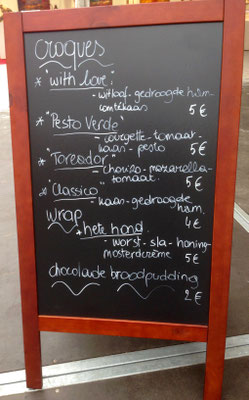 croques
* "with love"
- witloof - gedroogde ham -
comtékaas 5 €
* "Pesto Verde"
- courgette - tomaat -
kaas - pesto 5 €
* "Toreador"
- chorizo - mozzarella -
tomaat. 5 €
* "Classico"
- kaas - gedroogde
ham. 4 €
wrap
* hete hond
- worst - sla - honing -
mosterdcrème 5 €
chocolade broodpudding
2 €